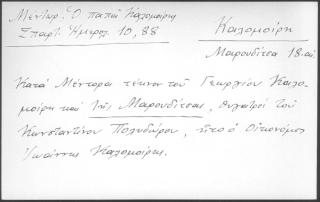 Μέντωρ: Ὁ παπᾶ Καλομοίρης
Σπαρτ. Ἡμερολ. 10, 88
Καλομοίρη
Μαρουδίτσα 18-αι.
Κατὰ Μέντορα τέκνον τοῦ Γεωργίου Καλο
μοίρη καὶ τῆς Μαρουδίτσας, θυγατρὸς τοῦ
Κωνσταντίνου Πολυδώρου, ἦτο ὁ Οἰκονόμος
Ἰωάννης Καλομοίρης.